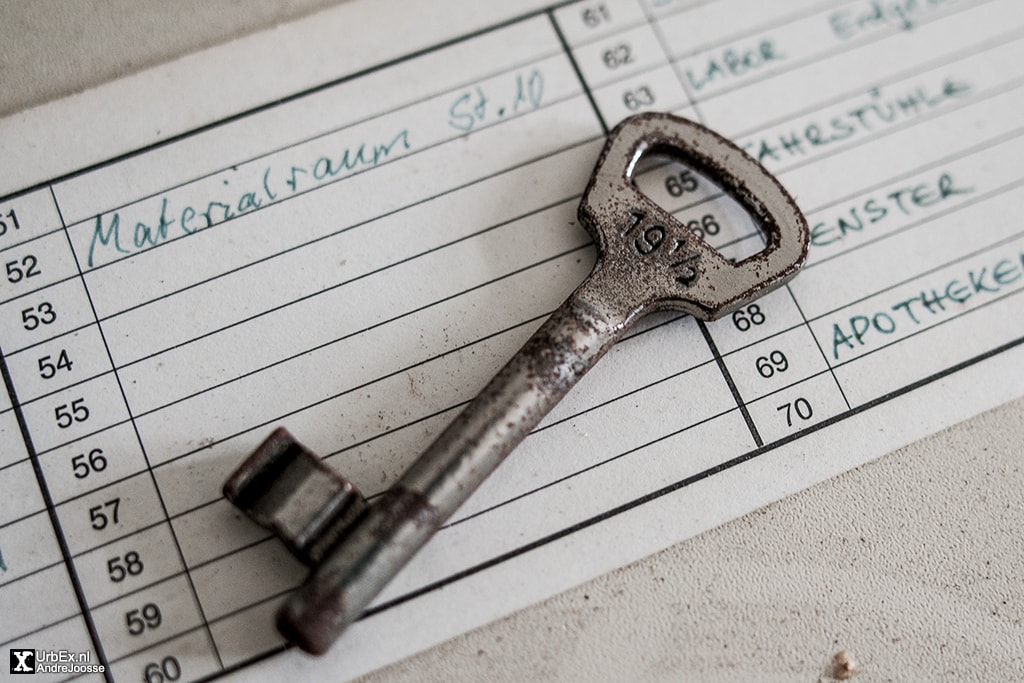 51
52 Materialraum St. 10
53
54
55
56
57
58
59
60
61
62
63 LABOR
65 AHRSTÜHLE
66
ENSTER
68
69 APOTHEKE
70
19½
UrbEx.nl
AndreJoosse